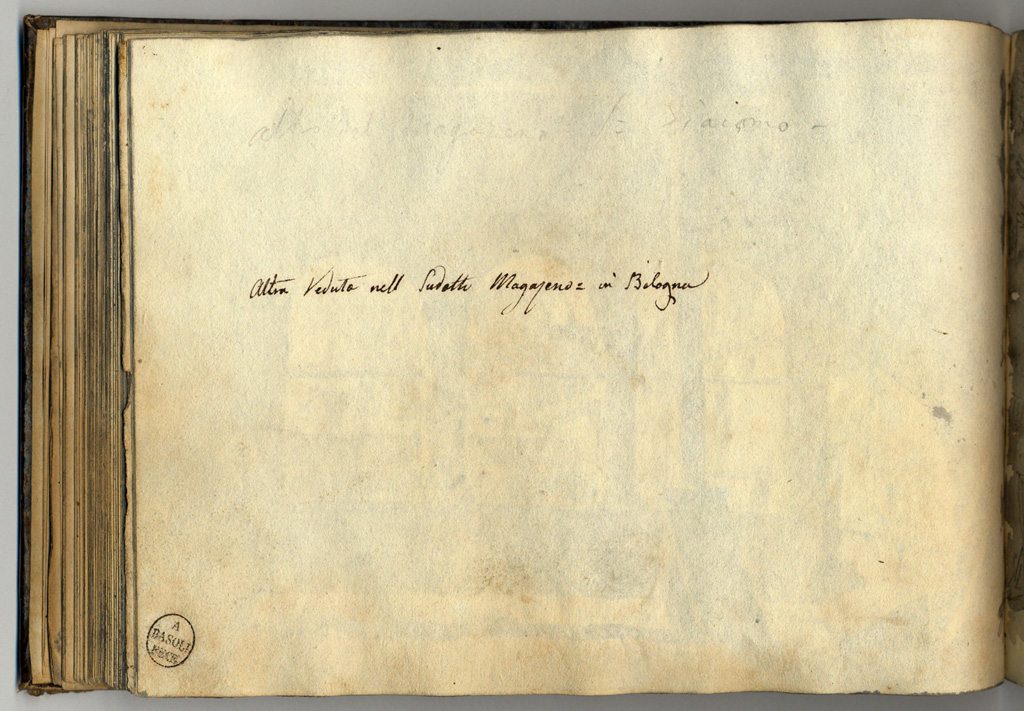 altro del Magazeno S= Giacomo -
Altra Veduta nell Sudetto Magazeno= in Bologna
A
BASOLI
FECE